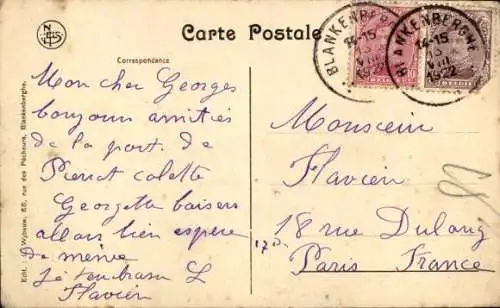 Carte Postale
Correspondance
Mon cher Georges
bonjour amitiés
de la part de
Pierrot Colette
Georgette baisers
allons bien espère
de même
Je t'embrasse
Flavien
Monsieur
Flavien
18 rue Dulong
Paris France
BLANKENBERGHE
14-15
13
VIII
1922
BLANKENBERGHE
14-15
13
VIII
1922
BELGIE
BELGIE
rue des Pêcheurs, Blankenberghe.